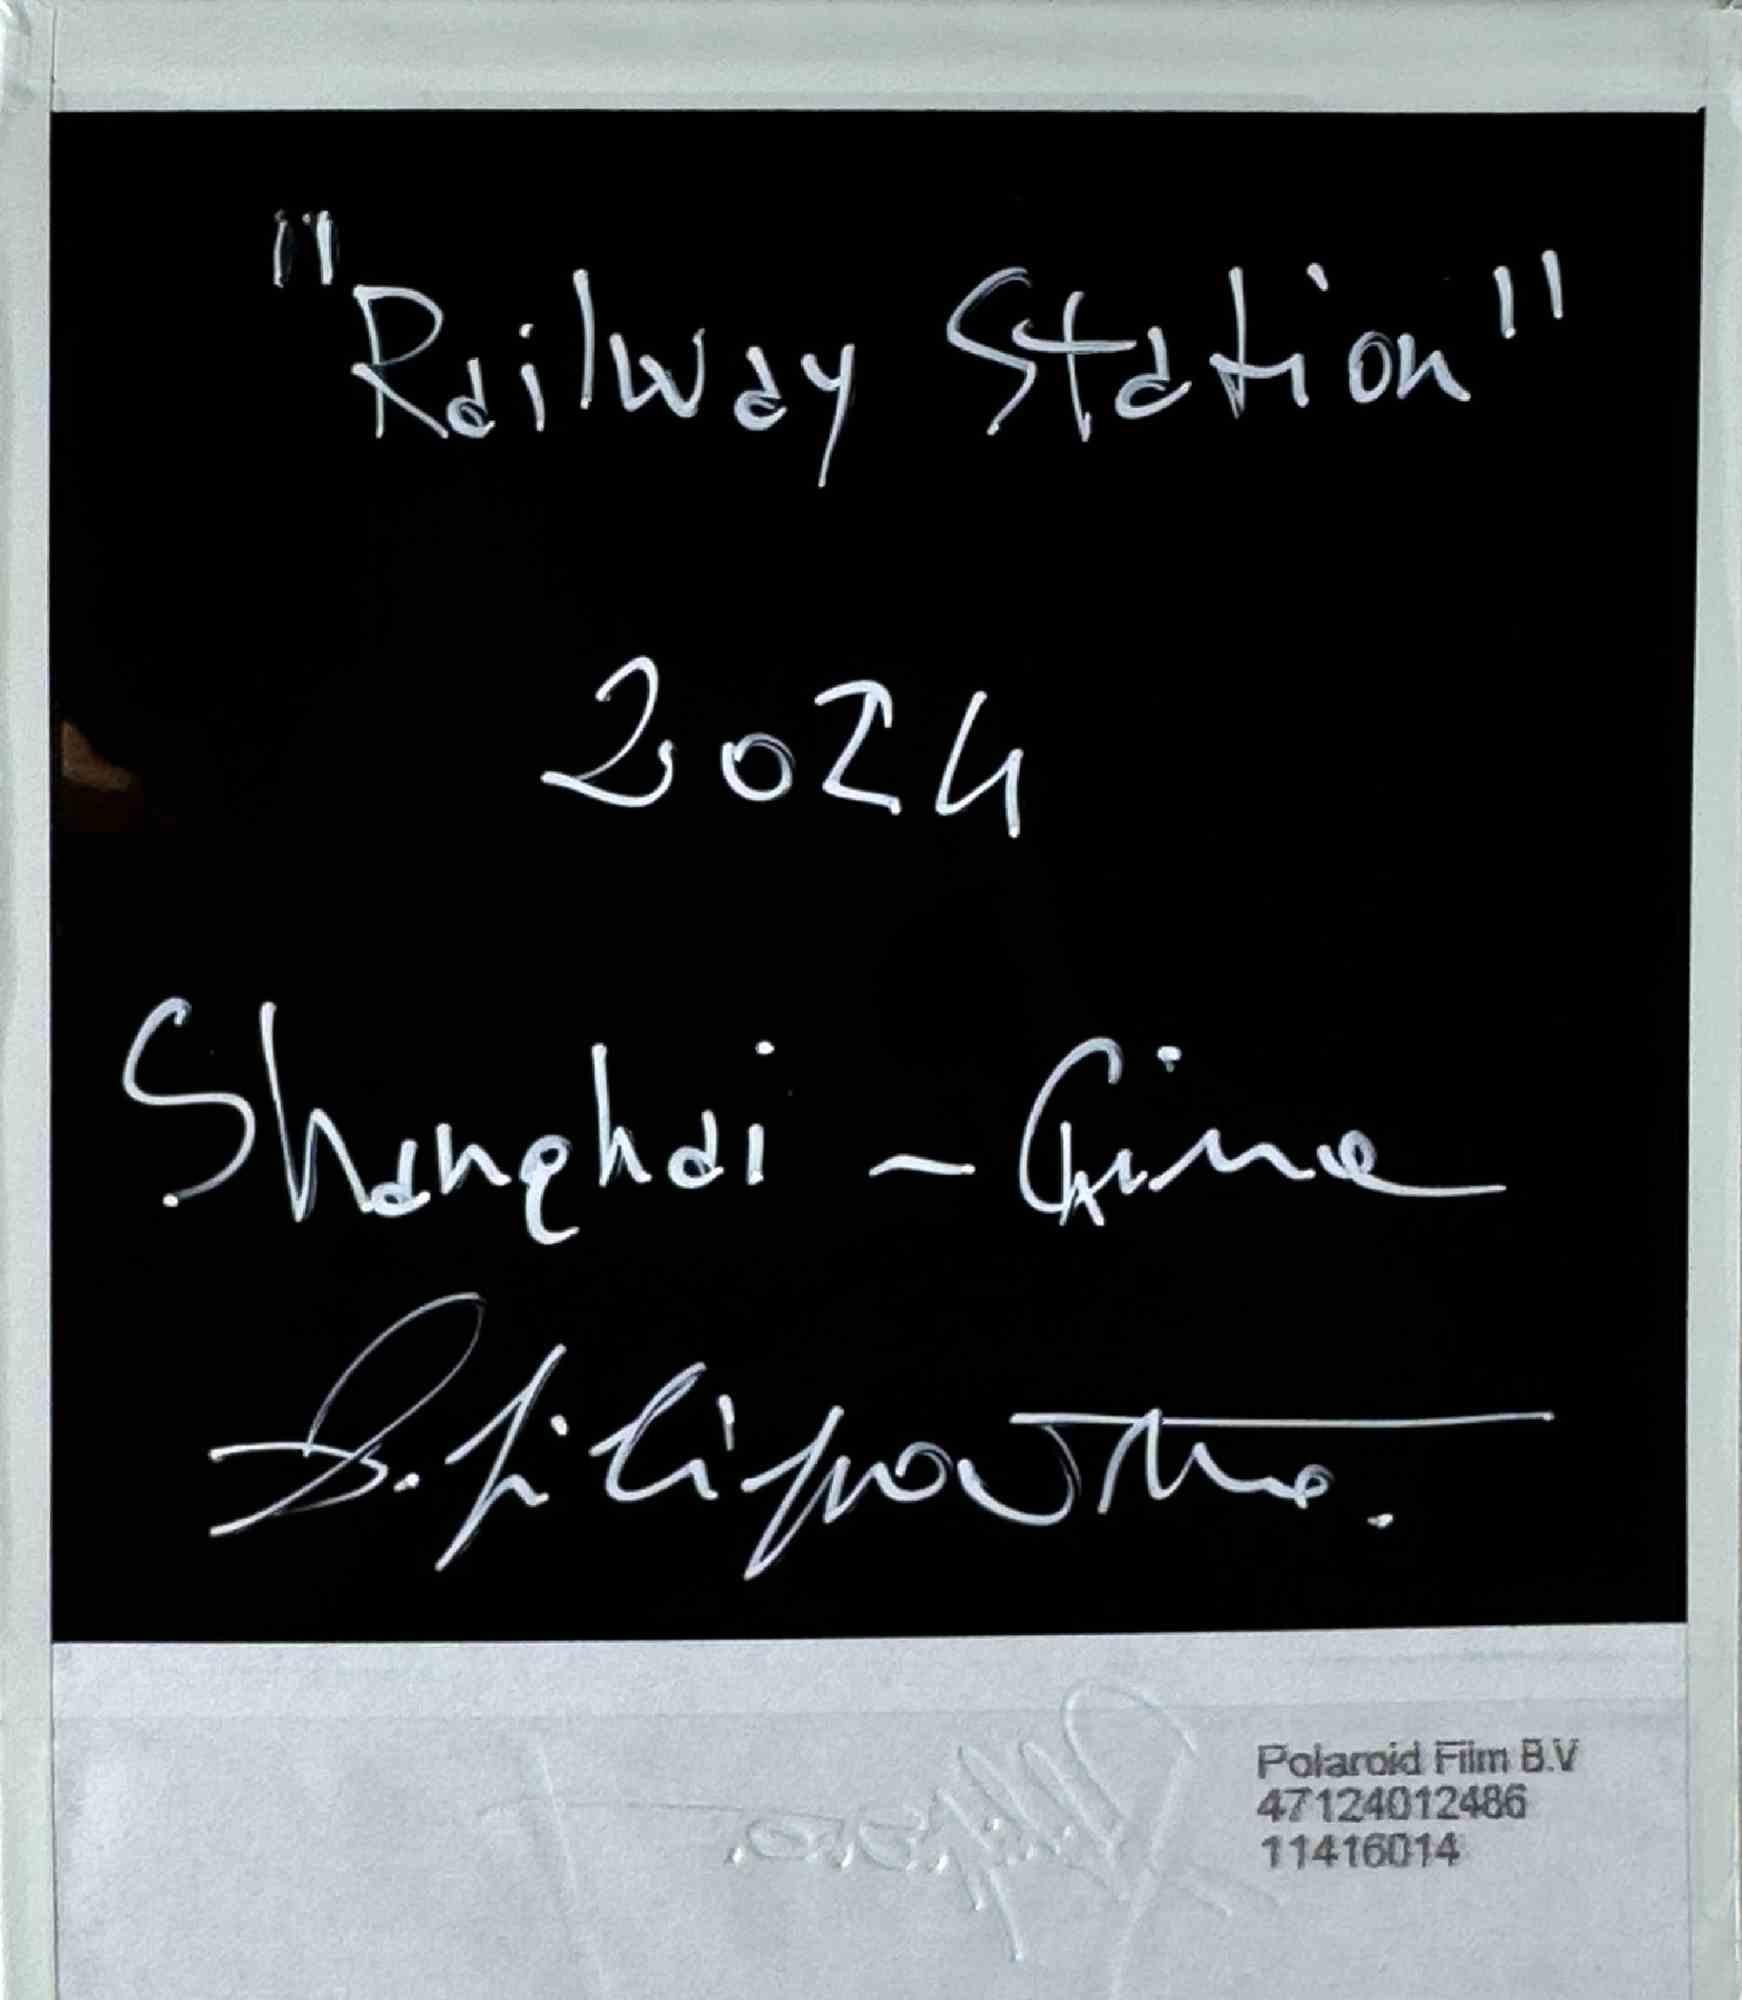 "Railway Station"
2024
Shanghai - China
Polaroid Film B.V
47124012486
11416014